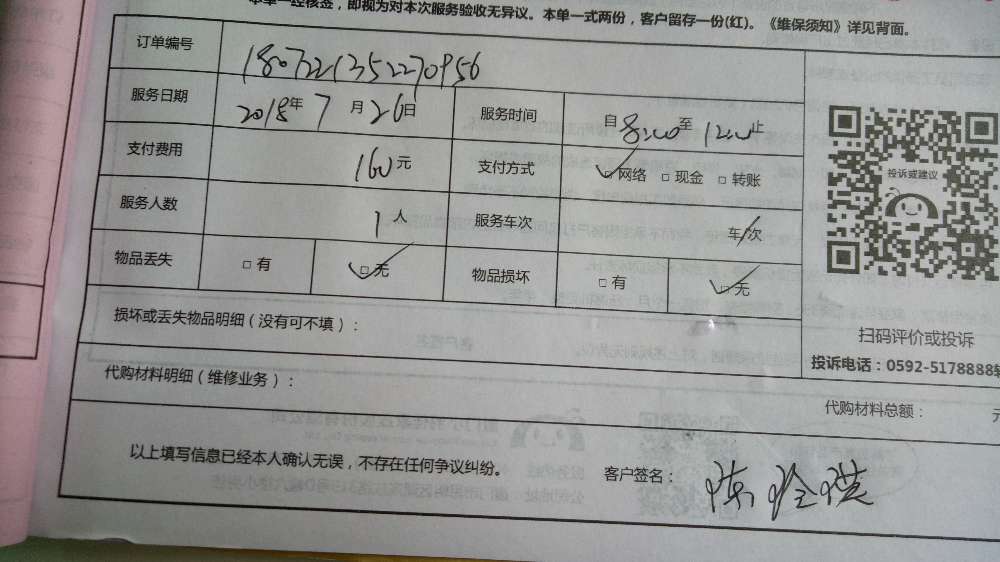 本单一经核签，即视为对本次服务验收无异议。本单一式两份，客户留存一份(红)。《维保须知》详见背面。
订单编号 1807221352270956
服务日期 2018年 7 月 26日 服务时间 自 8:00 至 12:00 止
支付费用 160 元 支付方式 □网络 □现金 □转账
服务人数 1 人 服务车次 车/次
物品丢失 □有 □无 物品损坏 □有 □无
投诉或建议
损坏或丢失物品明细（没有可不填）：
扫码评价或投诉
投诉电话：0592-5178888转
代购材料明细（维修业务）：
代购材料总额： 元
以上填写信息已经本人确认无误，不存在任何争议纠纷。 客户签名：